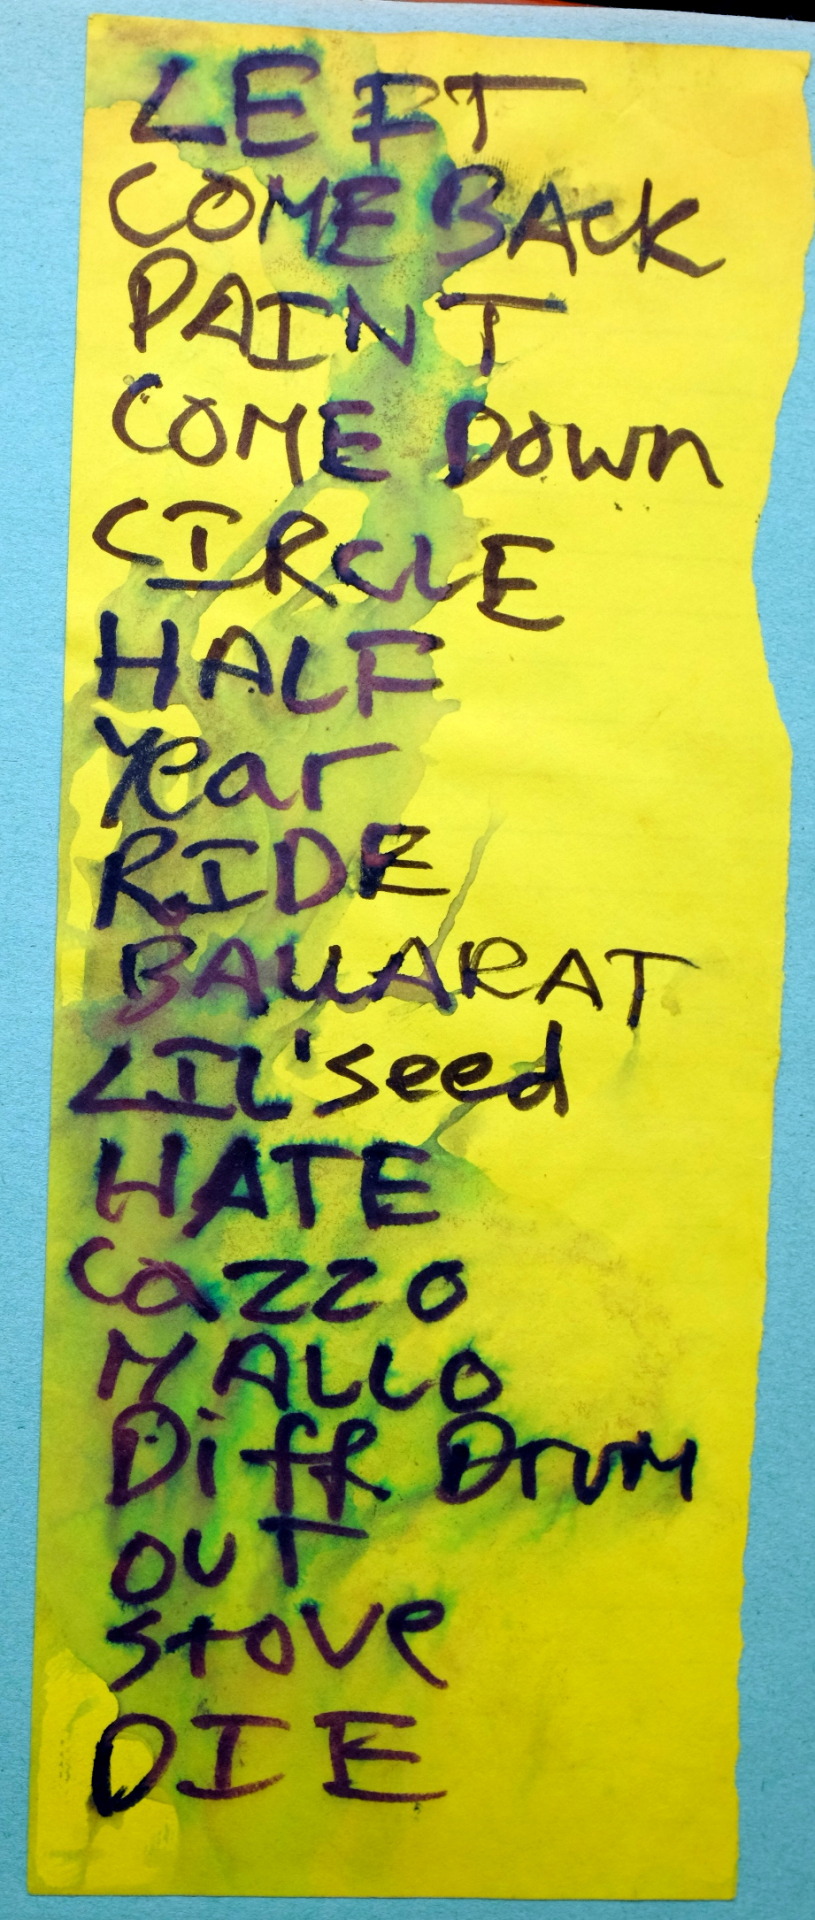 LEFT
COME BACK
PAINT
COME DOWN
CIRCLE
HALF
Year
RIDE
BALLARAT
LIL'seed
HATE
Cazzo
MALLO
Diff Drum
OUT
stove
DIE